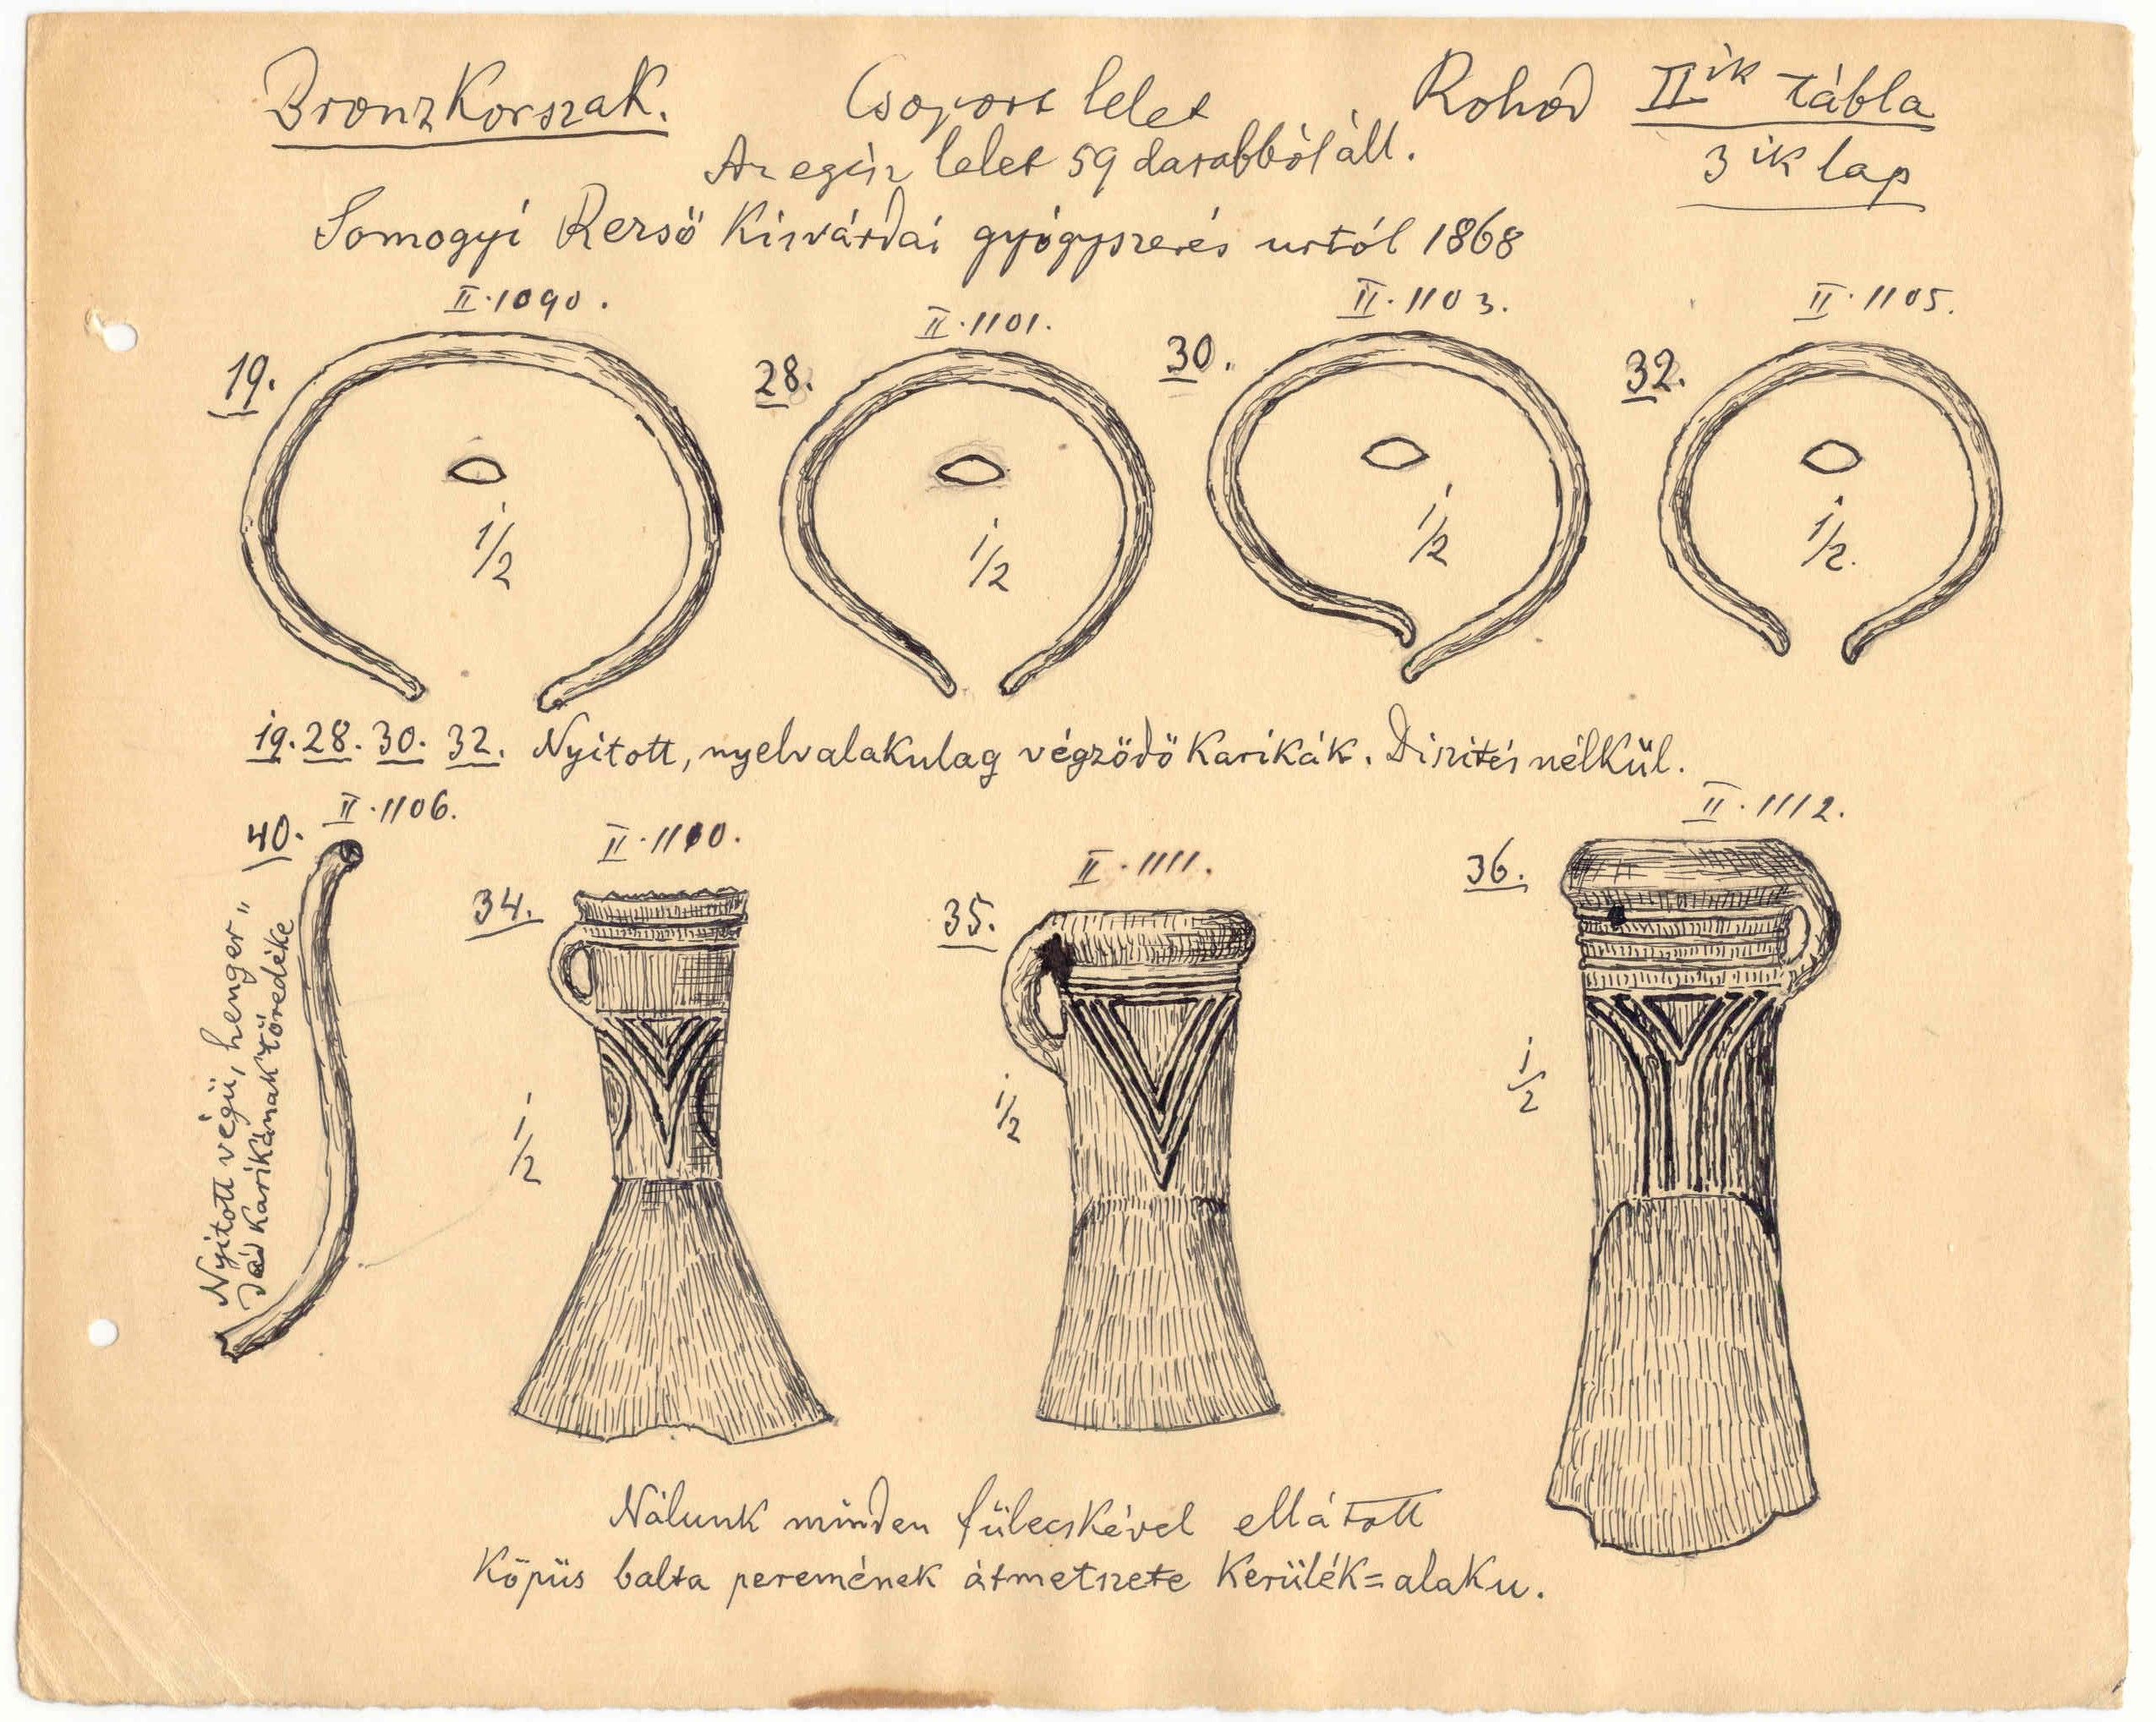 BronzKorszak. Csoport lelet Rohod II ik tábla
Az egész lelet 59 darabból áll. 3 ik lap
Somogyi Rezsö Kisvárdai gyógyszerés urtól 1868
II.1090. II.1101. II.1103. II.1105.
19. 28. 30. 32.
1/2 1/2 1/2 1/2.
19. 28. 30. 32. Nyitott, nyelvalakulag végzödö Karikák. Diszités nélkül.
40. II.1106. II.1110. II.1111. II.1112.
34. 35. 36.
1/2 1/2 1/2
Nyitott végü, henger"
ded Karikának töredéke
Nálunk minden fülecskével ellátott
Köpüs balta peremének átmetszete Kerülék=alaku.